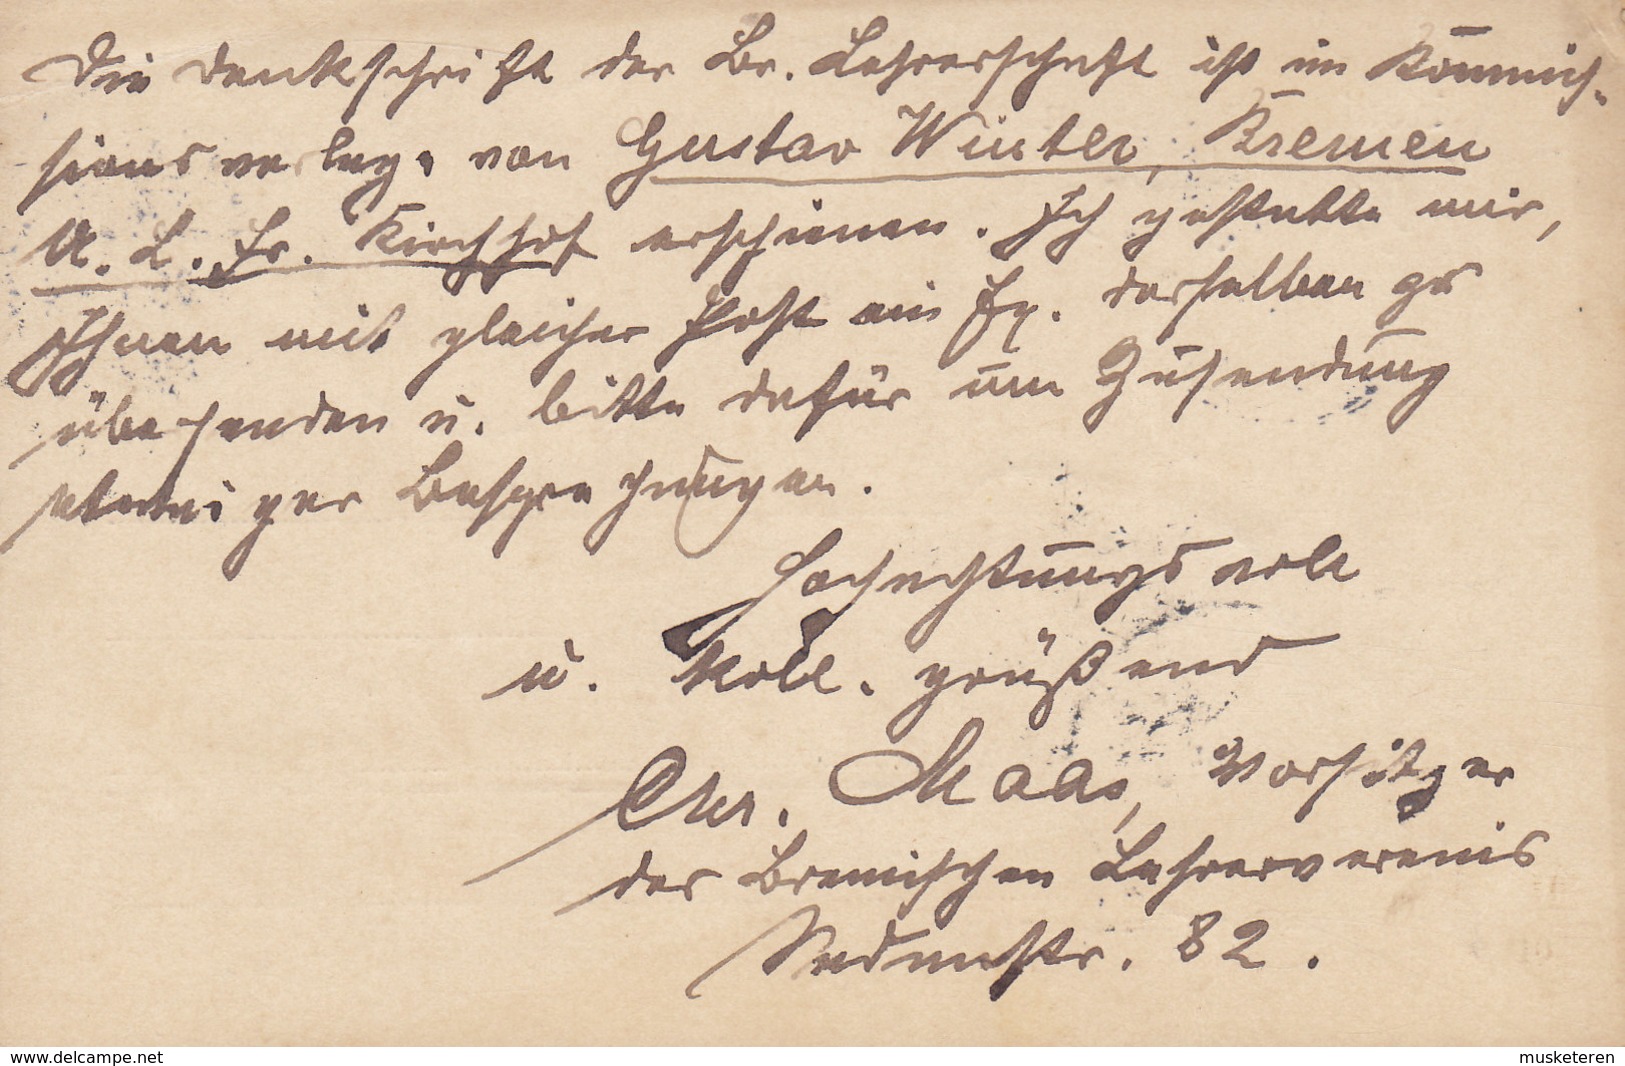 Die Denkschrift der Br. Lehrerschaft ist im Kommis-
sionsverlage von Gustav Winter, Bremen
U. L. Fr. Kirchhof erschienen. Ich gestatte mir,
Ihnen mit gleicher Post ein Ex. derselben zu
übersenden u. bitte dafür um Zusendung
etwaiger Besprechungen.
Hochachtungsvoll
u. koll. grüßend
Chr. Maas, Vorsitzer
des Bremischen Lehrervereins
82.
www.delcampe.net
musketeren